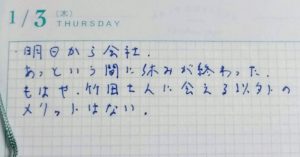 1/3 (木)
THURSDAY
・明日から会社.
あっという間に休みが終わった.
もはや、竹田さんに会える以外の
メリットはない.